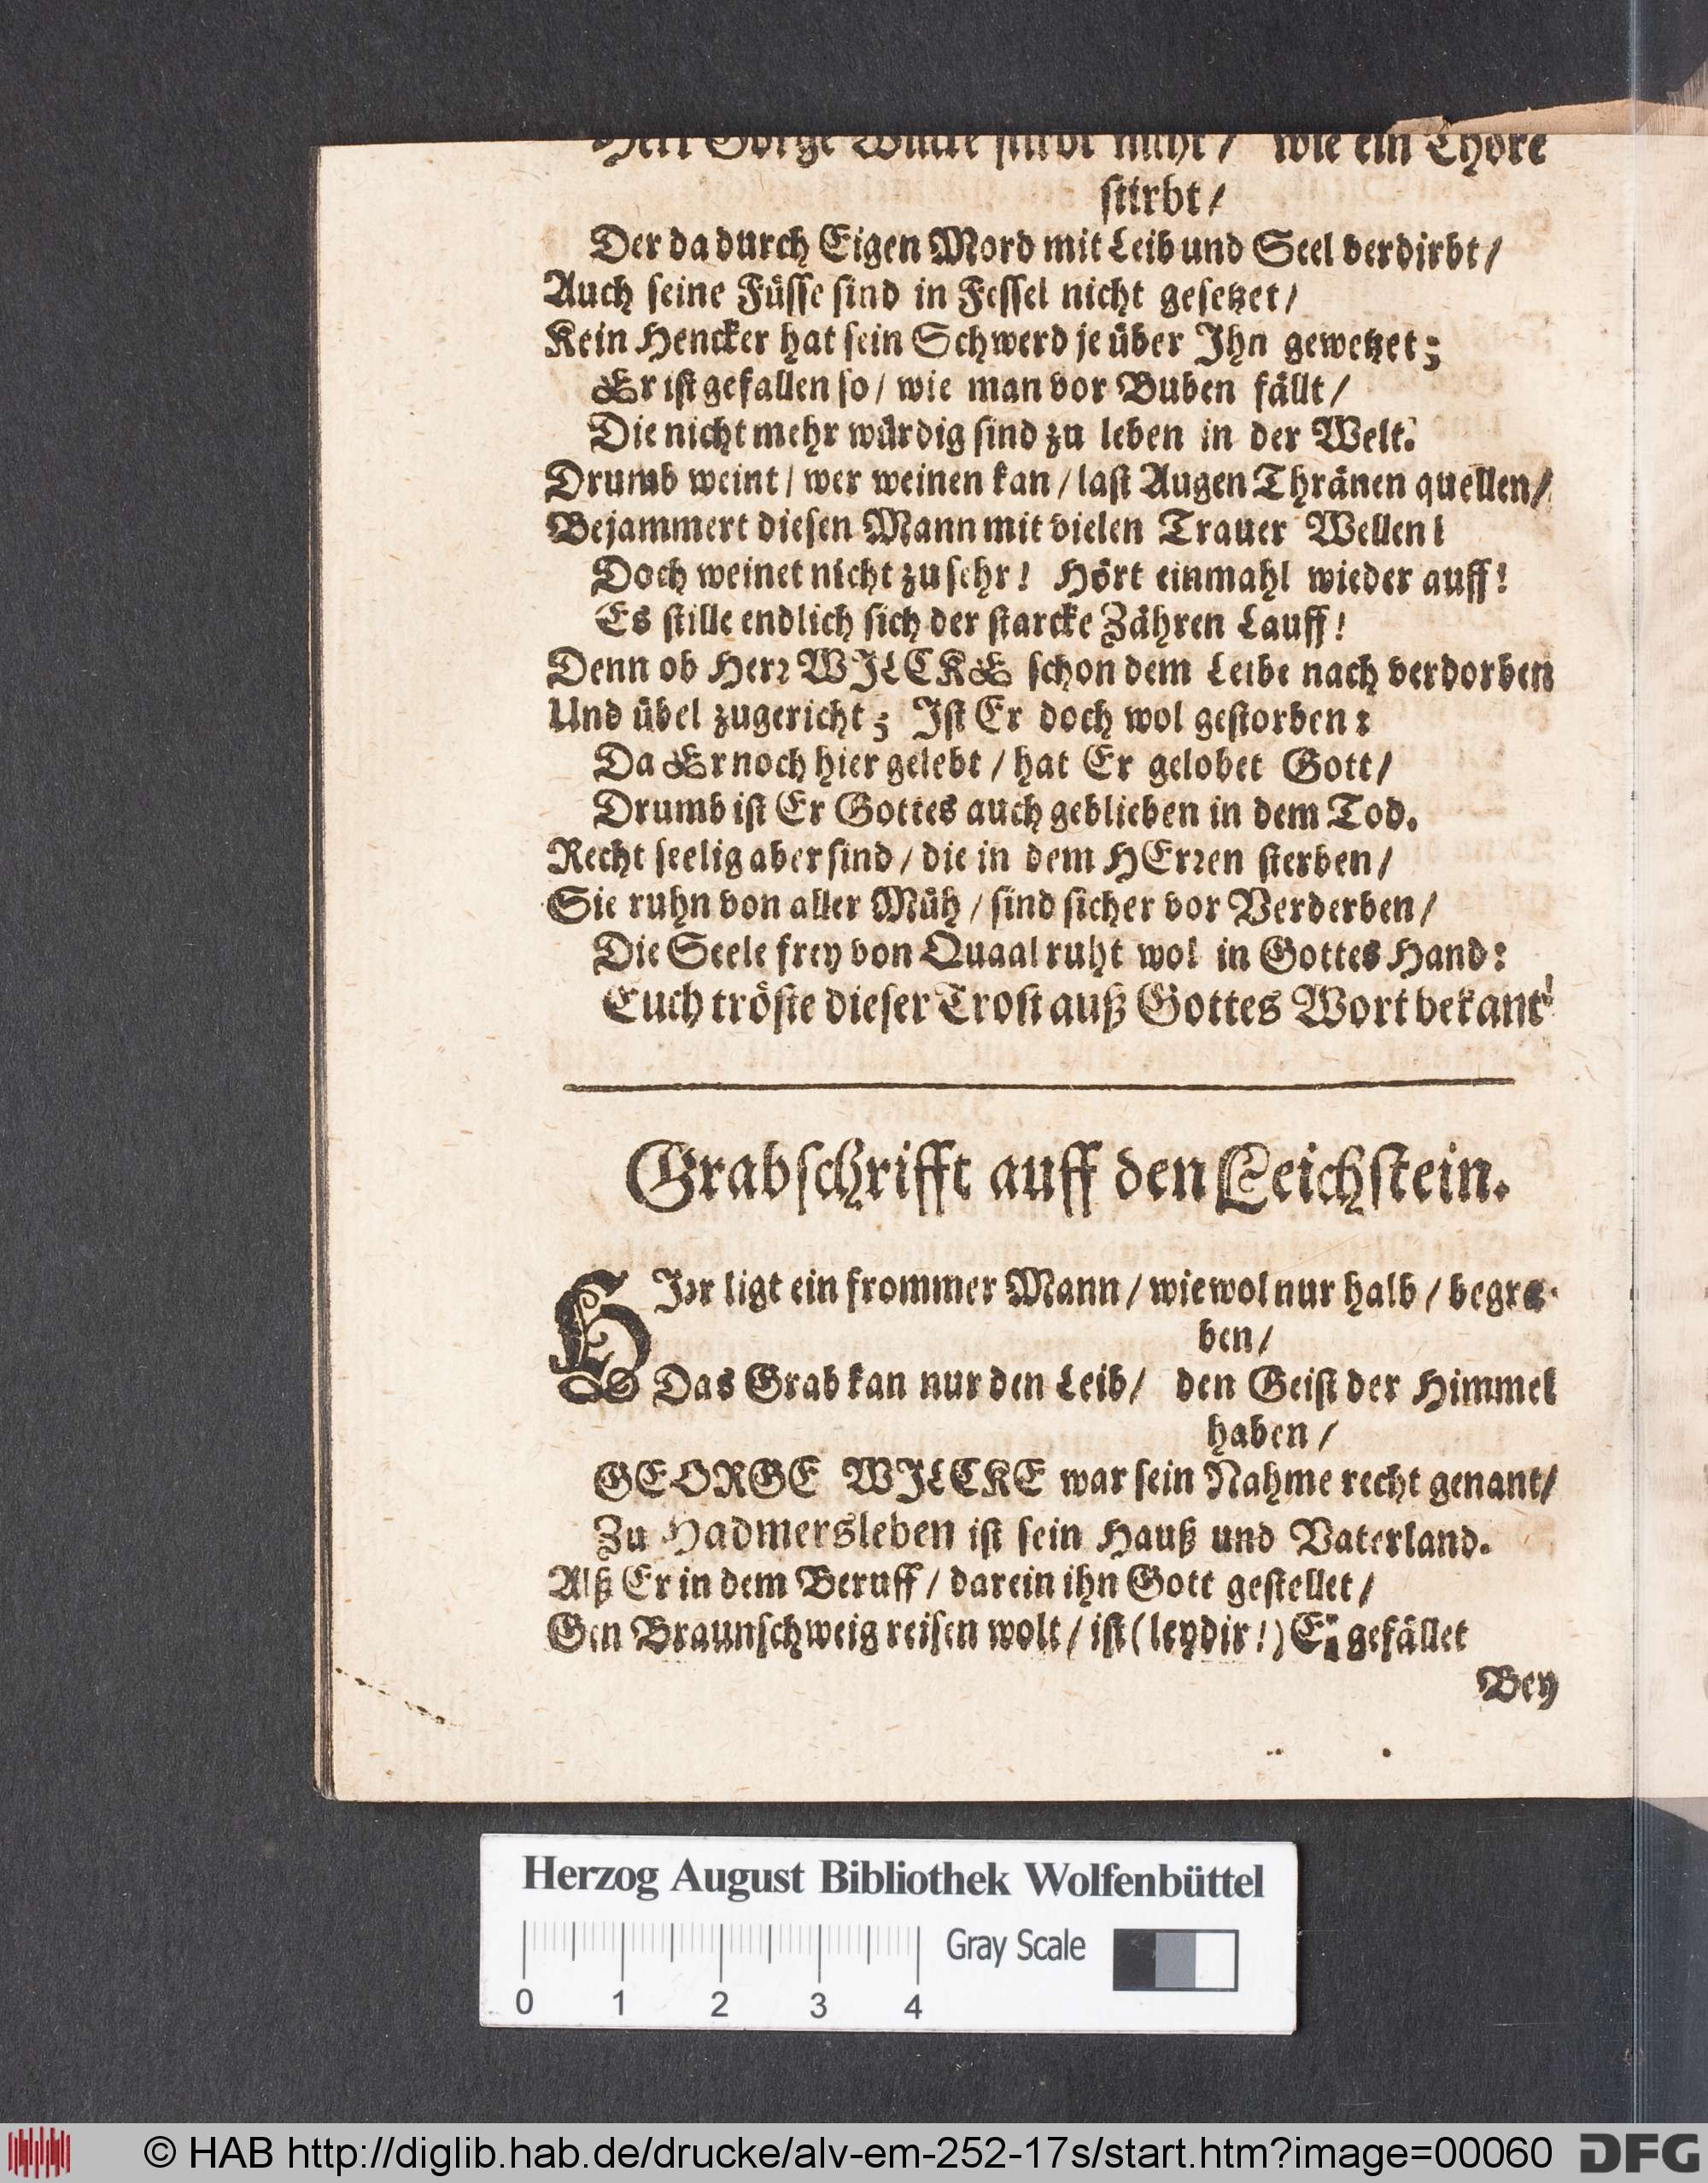 Herr Görge Wilcke stirbt nicht / wie ein Thore
stirbt /
Der da durch Eigen Mord mit Leib und Seel verdirbt /
Auch seine Füsse sind in Fessel nicht gesetzet /
Kein Hencker hat sein Schwerd je über Ihn gewetzet;
Er ist gefallen so / wie man vor Buben fällt /
Die nicht mehr würdig sind zu leben in der Welt.
Drumb weint / wer weinen kan / last Augen Thränen quellen /
Bejammert diesen Mann mit vielen Trauer Wellen!
Doch weinet nicht zu sehr! Hört einmahl wieder auff!
Es stille endlich sich der starcke Zähren Lauff!
Denn ob Herr WILCKE schon dem Leibe nach verdorben
Und übel zugericht; Ist Er doch wol gestorben:
Da Er noch hier gelebt / hat Er gelobet Gott /
Drumb ist Er Gottes auch geblieben in dem Tod.
Recht seelig aber sind / die in dem HErren sterben /
Sie ruhn von aller Müh / sind sicher vor Verderben /
Die Seele frey von Quaal ruht wol in Gottes Hand:
Euch tröste dieser Trost auß Gottes Wort bekant!
Grabschrifft auff den Leichstein.
HIer ligt ein frommer Mann / wiewol nur halb / begra-
ben /
Das Grab kan nur den Leib / den Geist der Himmel
haben /
GEORGE WILCKE war sein Nahme recht genant /
Zu Hadmersleben ist sein Hauß und Vaterland.
Alß Er in dem Beruff / darein ihn Gott gestellet /
Gen Braunschweig reisen wolt / ist (leydir!) Er gefället
Bey
Herzog August Bibliothek Wolfenbüttel
Gray Scale
0 1 2 3 4
© HAB http://diglib.hab.de/drucke/alv-em-252-17s/start.htm?image=00060 DFG